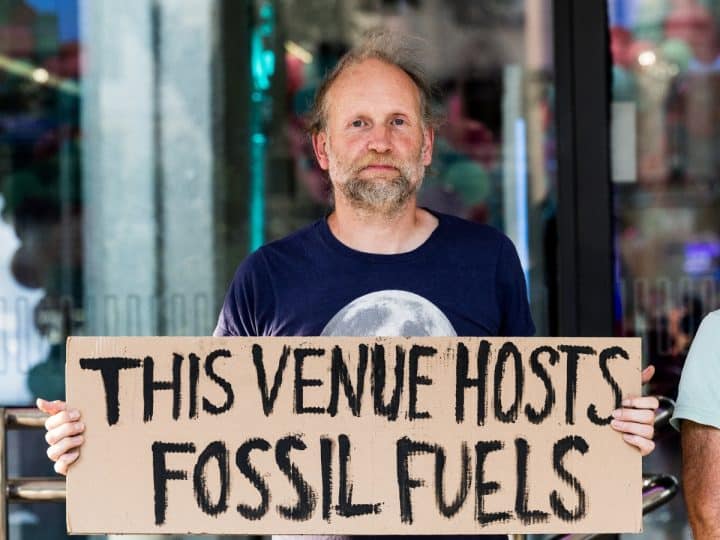 THIS VENUE HOSTS
FOSSIL FUELS